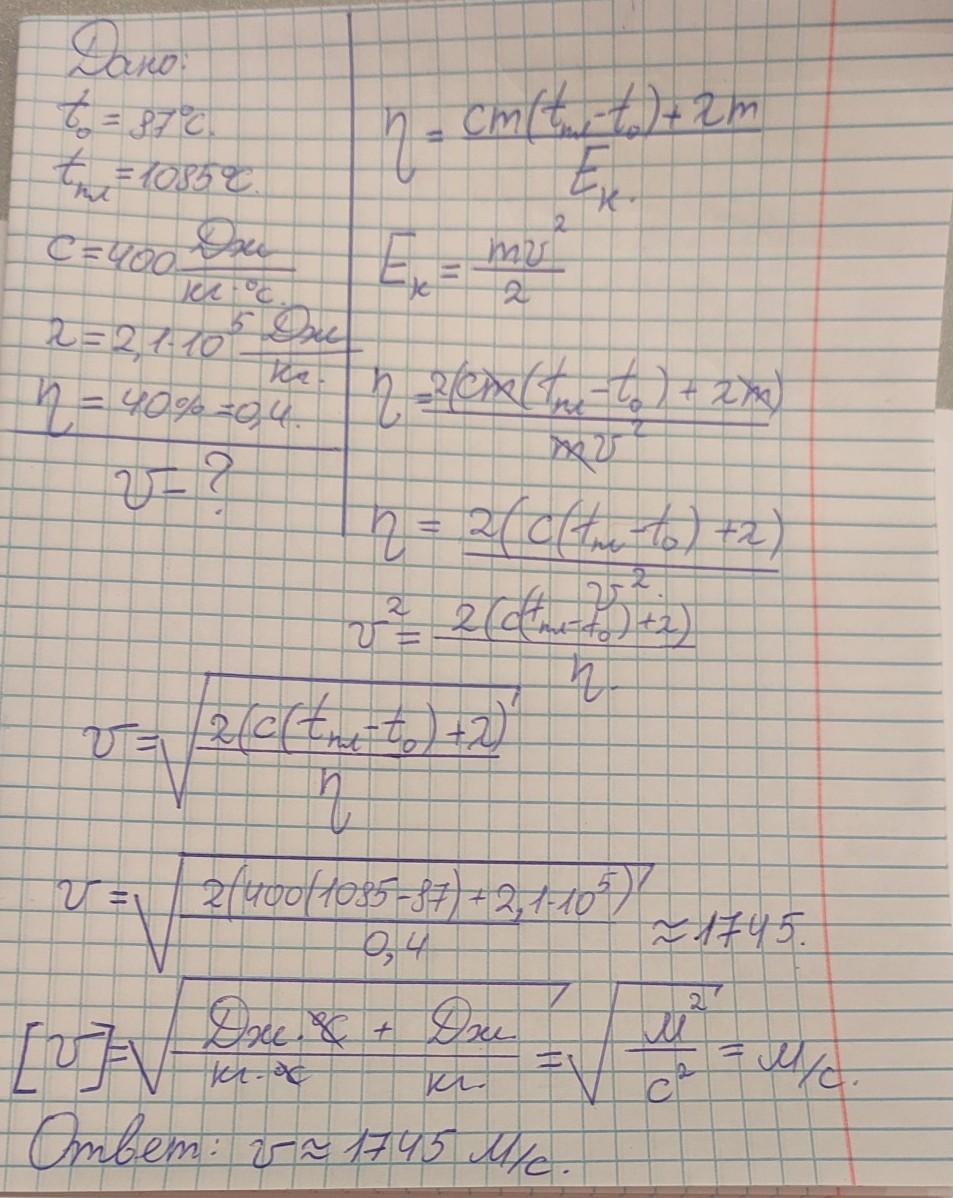 Дано:
t₀ = 87°C.
tпл = 1085°C.
c = 400 Дж/кг·°C.
λ = 2,1·10⁵ Дж/кг.
η = 40% = 0,4.
v - ?
η = (cm(tпл - t₀) + λm)/Eк.
Eк = mv²/2
η = 2(cm(tпл - t₀) + λm)/mv²
η = 2(c(tпл - t₀) + λ)/v².
v² = 2(c(tпл - t₀) + λ)/η.
v = √(2(c(tпл - t₀) + λ)/η)
v = √(2(400(1085 - 87) + 2,1·10⁵)/0,4) ≈ 1745.
[v] = √(Дж·°C/кг·°C + Дж/кг.) = √(м²/с²) = м/с.
Ответ: v ≈ 1745 м/с.